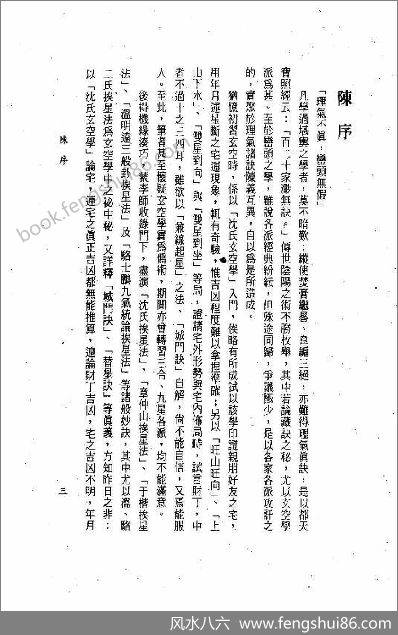 陳序
「理氣不眞，巒頭無假」
凡學過堪輿之學者，莫不暗歎：縱使焚膏繼晷、韋編三絕，亦難得理氣眞訣；是以都天
寶照經云：「百二十家渺無訣。」傳世陰陽之術不勝枚舉，其中若論藏訣之秘，尤以玄空學
派爲甚。至於巒頭之學，雖說各派經典紛紜，但殊途同歸，爭議極少，是以各家各派攻訐之
的，實繫於理氣諸訣陳義互異，自以爲是所造成。
猶憶初習玄空時，係以「沈氏玄空學」入門，俟略有所成試以該學印證親朋好友之宅，
用年月遊星斷之宅運現象，輒有奇驗，惟吉凶程度難以拿捏準確；另以「旺山旺向」、「上
山下水」、「雙星到向」與「雙星到坐」等局，證諸宅外形勢與宅內佈局時，試言財丁，中
者不過十之三四耳，雖欲以「兼線起星」之法、「城門訣」自解，尚不能自信，又焉能服
人。至此，筆者甚至懷疑玄空學實爲僞術，期間亦嘗轉習三合、九星各派，均不能滿意。
後得機緣湊巧，蒙李師收錄門下，盡演「沈氏挨星法」、「章仲山挨星法」、「于楷挨星
法」、「溫明遠三般卦挨星法」及「駱士鵬九氣統論挨星法」等諸般妙訣，其中尤以溫、駱
二氏挨星法爲玄空學中之秘中秘，又詳釋「城門訣」、「替星訣」等眞義，方知昨日之非：
以「沈氏玄空學」論宅，連宅之眞正吉凶都無能推算，遑論財丁吉凶，宅之吉凶不明，年月
陳序
三
book.fengshui86.com
风水八六 www.fengshui86.com